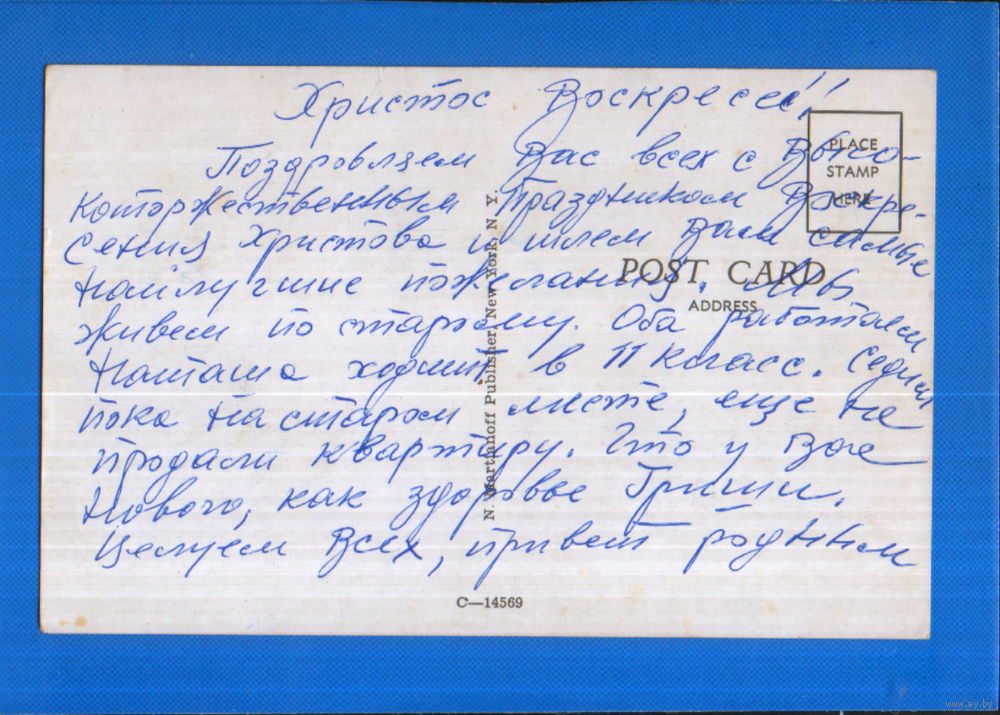 Христос Воскресе!!
Поздровляем Вас всех с Высо-
которжественным Праздником Воскре-
сения Христова и шлем Вам самые
наилучшие пожелания. Мы
живем по старому. Оба работаем
Наташа ходит в 11 класс. Седим
пока на старом месте, еще не
продали квартиру. Что у Вас
нового, как здоровье Гриши.
Целуем Всех, привет родным
PLACE
STAMP
HERE
POST CARD
ADDRESS
N. Martianoff Publisher, New York, N. Y.
C—14569
www.ay.by